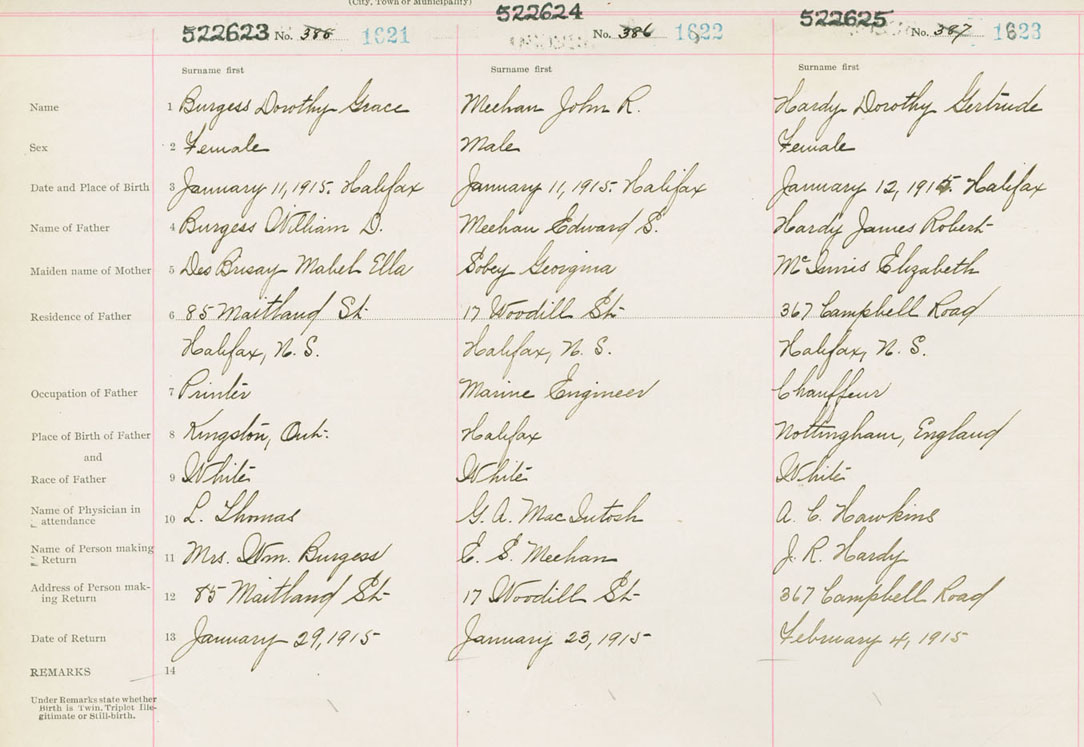 (City, Town or Municipality)
522623 No. 385 1621
522624 No. 386 1622
522625 No. 387 1623
Surname first Surname first Surname first
Name 1 Burgess Dorothy Grace Meehan John R. Hardy Dorothy Gertrude
Sex 2 Female Male Female
Date and Place of Birth 3 January 11, 1915. Halifax January 11, 1915. Halifax January 12, 1915. Halifax
Name of Father 4 Burgess William D. Meehan Edward S. Hardy James Robert
Maiden name of Mother 5 Des Brisay Mabel Ella Sobey Georgina McInnis Elizabeth
Residence of Father 6 85 Maitland St. 17 Woodill St. 367 Campbell Road
Halifax, N. S. Halifax, N. S. Halifax, N. S.
Occupation of Father 7 Printer Marine Engineer Chauffeur
Place of Birth of Father 8 Kingston, Ont. Halifax Nottingham, England
and
Race of Father 9 White White White
Name of Physician in
attendance 10 L. Thomas G. A. MacIntosh A. C. Hawkins
Name of Person making
Return 11 Mrs. Wm. Burgess E. S. Meehan J. R. Hardy
Address of Person mak-
ing Return 12 85 Maitland St. 17 Woodill St. 367 Campbell Road
Date of Return 13 January 29, 1915 January 23, 1915 February 4, 1915
REMARKS 14
Under Remarks state whether
Birth is Twin, Triplet Ille-
gitimate or Still-birth.